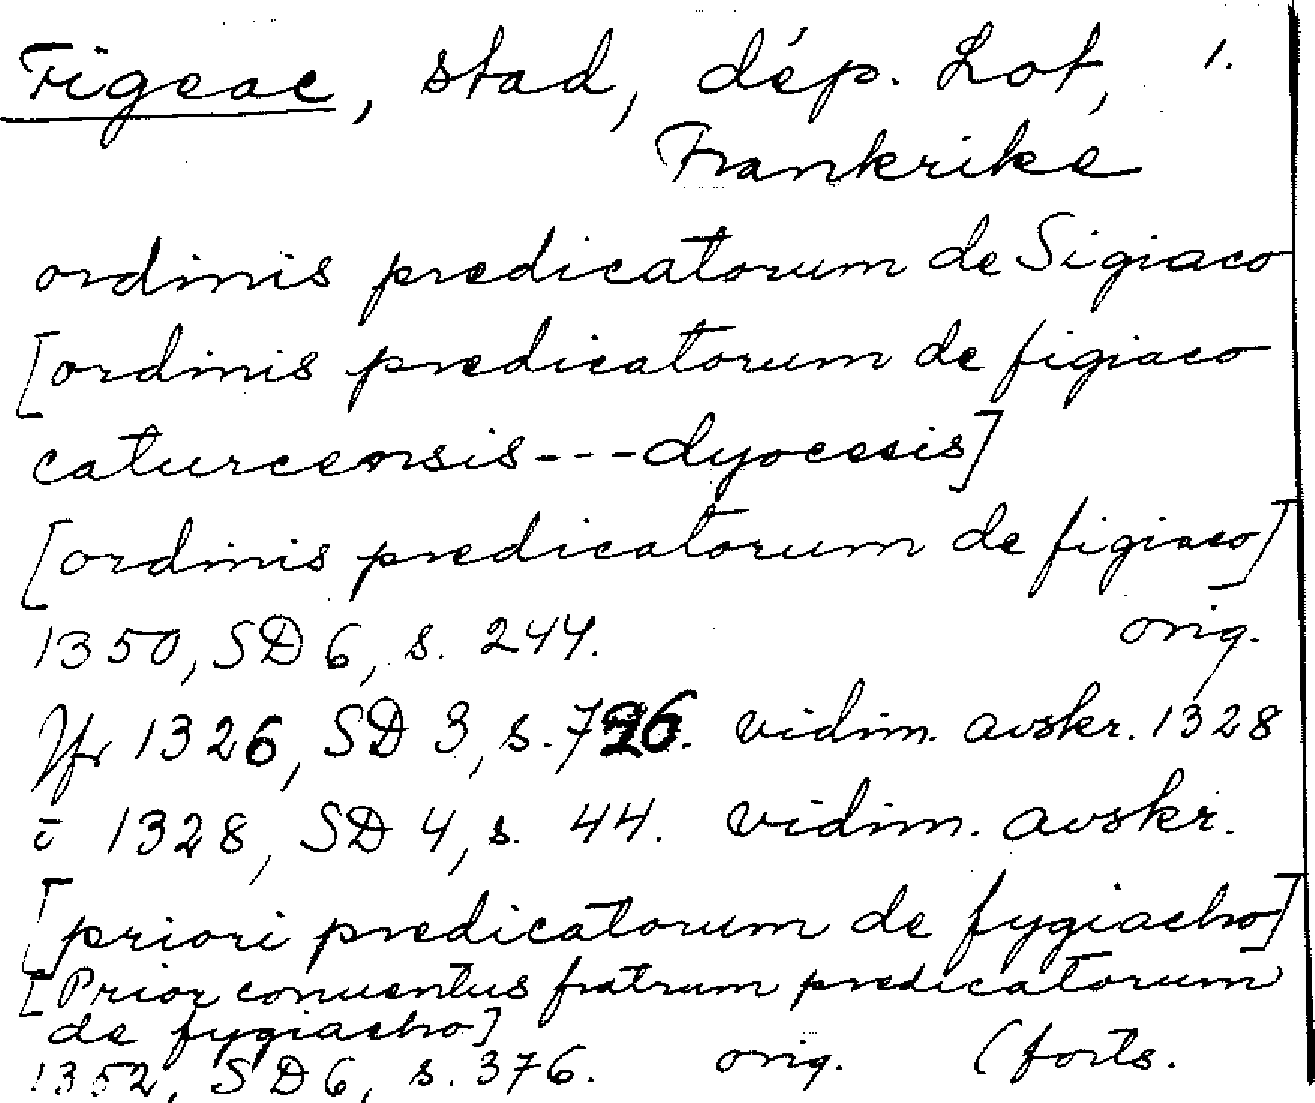 Figeac, stad, dép. Lot, 1.
Frankrike
ordinis predicatorum de Sigiaco
[ordinis predicatorum de figiaco
caturcensis---dyocesis]
[ordinis predicatorum de figiaco]
1350, SD 6, s. 244. orig.
Jfr 1326, SD 3, s. 726. vidim. avskr. 1328
o 1328, SD 4, s. 44. vidim. avskr.
[priori predicatorum de fygiacho]
[Prior conuentus fratrum predicatorum
de fygiacho]
1352, SD 6, s. 376. orig. (forts.